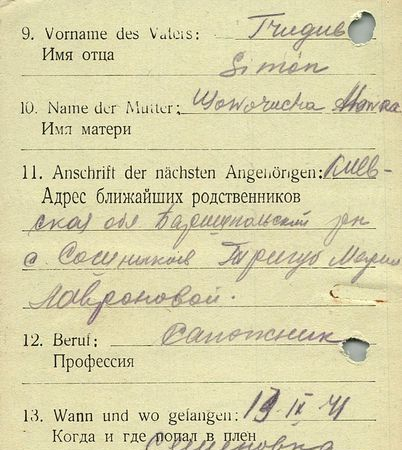 9. Vorname des Vaters: Тригуб
Имя отца
Simon
10. Name der Mutter:
Имя матери
11. Anschrift der nächsten Angehörigen: Киев-
Адрес ближайших родственников
ская обл Барищпольский рн
с. Тригуб Марии
Лавроновой.
12. Beruf: Сапожник
Профессия
13. Wann und wo gefangen: 19 IX 41
Когда и где попал в плен
Семеновка